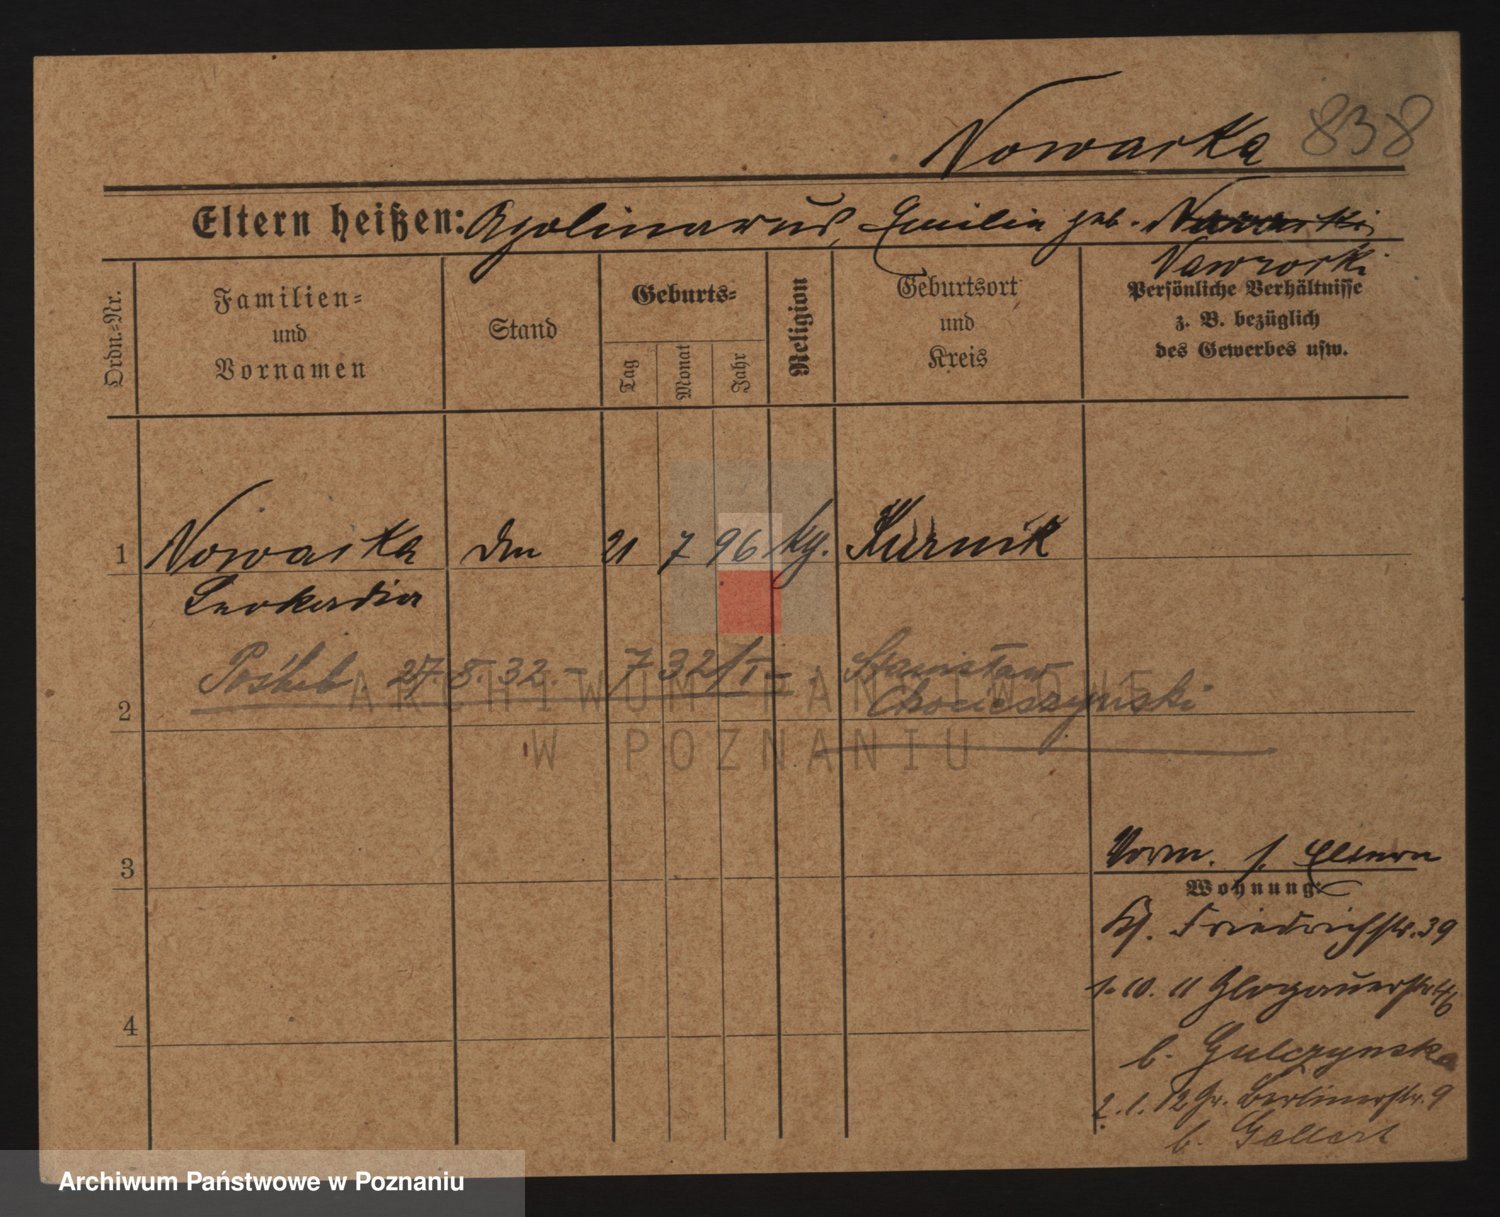 Nowacka 838
Eltern heißen: Apolinarius, Emilia geb. Nawrocki
Nawrocki
Ordn.-Nr.
Familien-
und
Vornamen
Stand
Geburts-
Tag
Monat
Jahr
Religion
Geburtsort
und
Kreis
Persönliche Verhältnisse
z. B. bezüglich
des Gewerbes usw.
1 Nowacka 21 7 96 Kurnik
Leokadia
27.8.32.- 7 32 Stanisław
2 Chocieszyński
ARCHIWUM PAŃSTWOWE
W POZNANIU
3
Vorm. s. Eltern
Wohnung:
Friedrichstr. 39
1.10.11 Glogauerstr.
4
b. Gulczynska
2.1.12 Gr. Berlinerstr. 9
b. Gallert
Archiwum Państwowe w Poznaniu